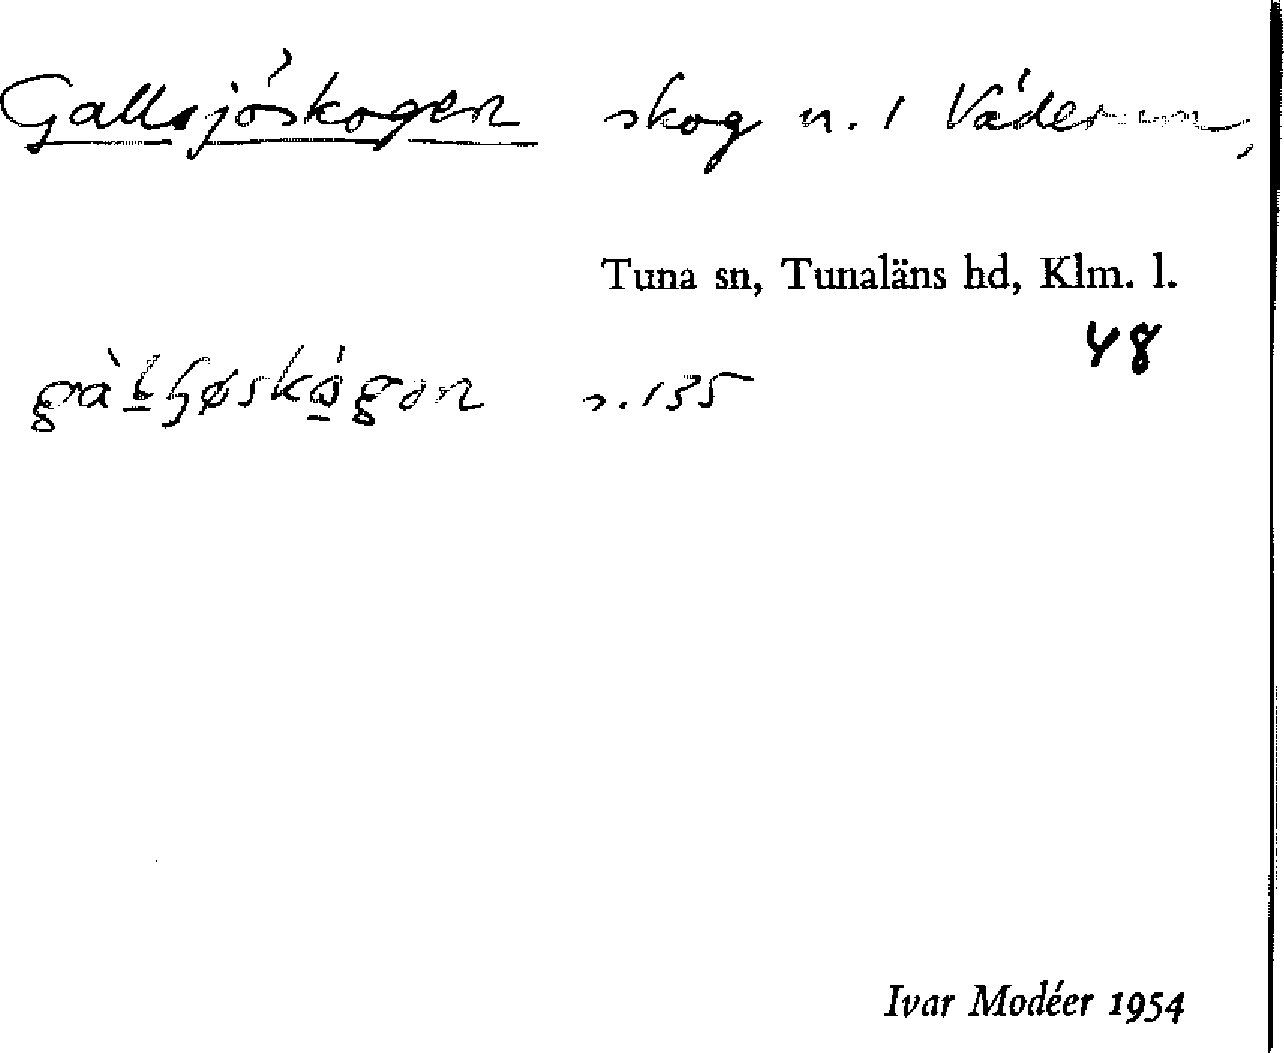 Gallsjöskogen skog n. 1 Väderum,
Tuna sn, Tunaläns hd, Klm. l.
48
n. 135
Ivar Modéer 1954